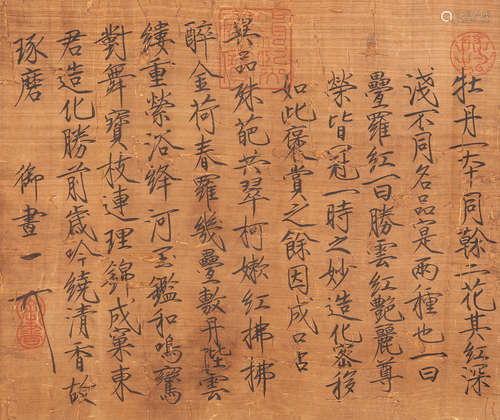 牡丹一本同幹二花其紅深
淺不同名品寔兩種也一曰
疊羅紅一曰勝雲紅艷麗尊
榮皆冠一時之妙造化密移
如此褒賞之餘因成口占
異品殊葩共翠柯嫩紅拂拂
醉金荷春羅幾疊敷丹陛雲
縷重縈浴絳河玉鑑和鳴鸞
對舞寶枝連理錦成窠東
君造化勝前歲吟繞清香故
琢磨 御畫
御書